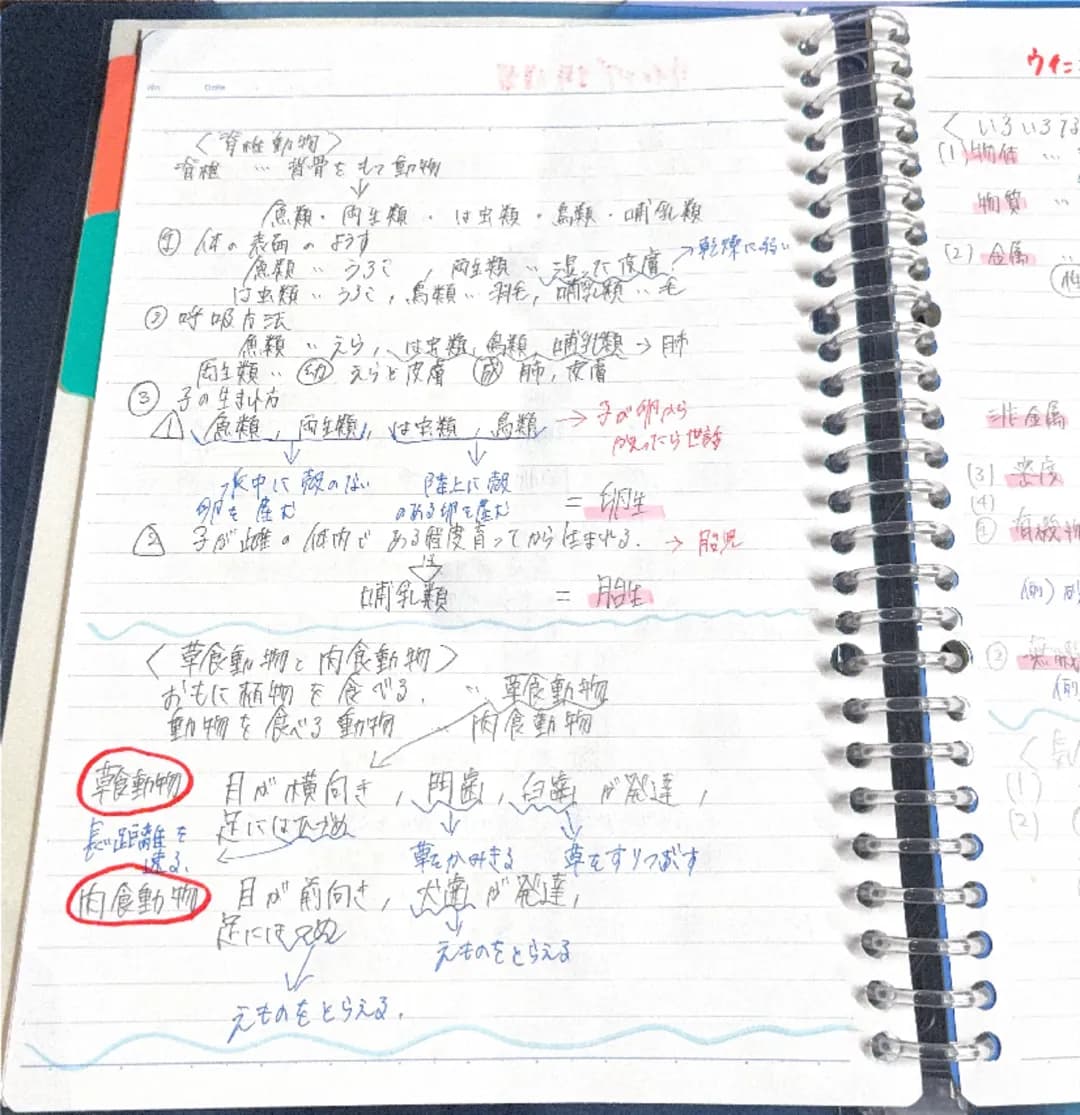 No.
Date
〈脊椎動物〉
脊椎 … 背骨をもつ動物
↓
魚類・両生類・は虫類・鳥類・哺乳類
① 体の表面のようす
魚類‥うろこ, 両生類‥湿った皮膚 →乾燥に弱い
は虫類‥うろこ, 鳥類‥羽毛, 哺乳類‥毛
② 呼吸方法
魚類‥えら, は虫類, 鳥類, 哺乳類→肺
両生類‥幼 えらと皮膚 成 肺, 皮膚
③ 子の生まれ方
1 魚類, 両生類, は虫類, 鳥類 → 子が卵から
かえったら世話
水中に殻のない 陸上に殻
卵を産む のある卵を産む = 卵生
2 子が雌の体内である程度育ってから生まれる. → 胎児
は
哺乳類 = 胎生
〈草食動物と肉食動物〉
おもに植物を食べる. ‥ 草食動物
動物を食べる動物 肉食動物
草食動物 目が横向き, 門歯, 臼歯が発達,
長い距離を 足にはひづめ
走る. 草をかみきる 草をすりつぶす
肉食動物 目が前向き, 犬歯が発達,
足にはつめ
えものをとらえる
えものをとらえる.
ウイニ
〈いろいろな
(1) 物体 ‥
物質 ‥
(2) 金属 ‥
非金属
(3) 密度
(4)
① 有機物
(例)
②
(1)
(2)